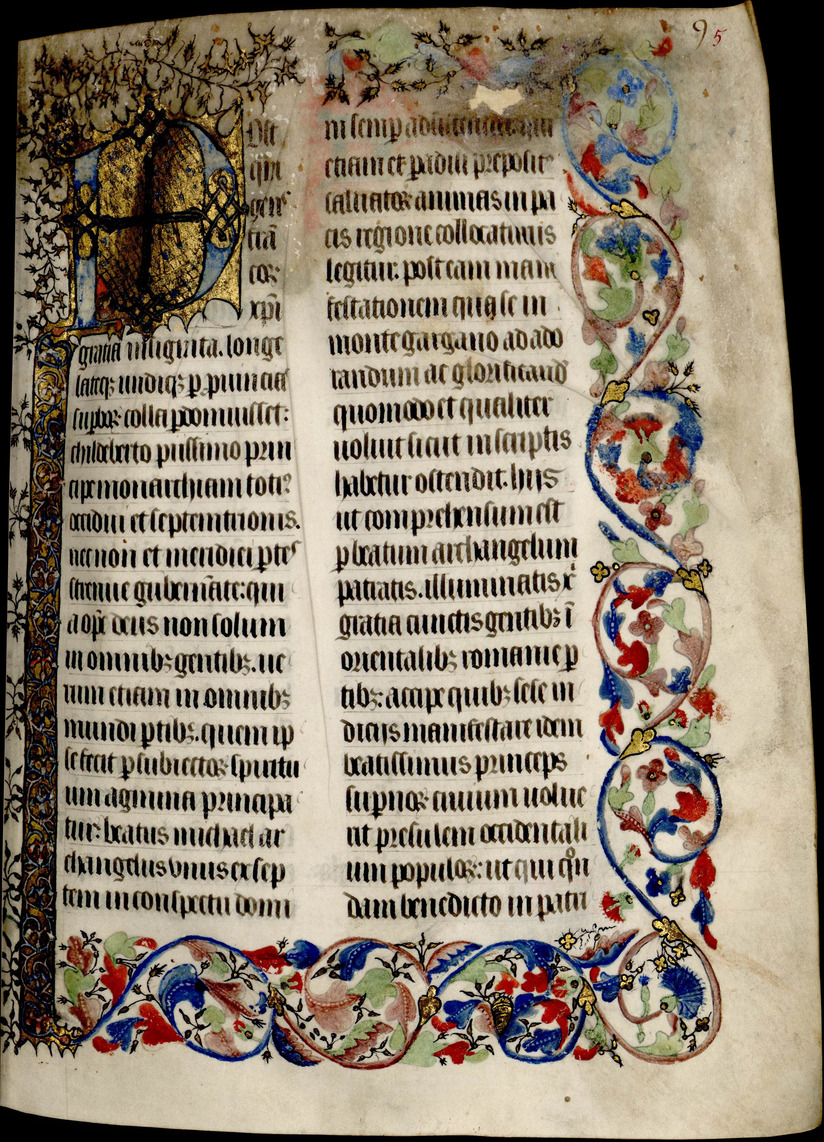 95
Post
qm̄
gens
cor
xp̄i
gratia insignita. longe
lateqꝫ undiqꝫ ꝑ ꝓuincias
suꝑboꝝ colla ꝑdomuisset:
childeberto piissimo prin
cipe monarchiam toti
occidui et septemtrionis.
nec non et meridiei ꝑtes
strenue gubernāte: qui
a ope deus non solum
in omnibꝫ gentibꝫ. ue
rum etiam in omnibꝫ
mundi ꝑtibꝫ. quem ip
se fecit ꝑ subiectos spiritu
um agmina principa
tur: beatus michael ar
changelus vnus ex sep
tem in conspectu domi
ni semp
etiam et
saluatos animas in pa
cis regione collocatiuis
legitur. post eam mani
festationem qua se in
monte gargano ad ado
randum ac glorificand
quomodo et qualiter
uoluit sicut in scriptis
habetur ostendit. hiis
ut comprehensum est
ꝑ beatum archangelum
patratis. illuminatis x̄
gratia cunctis gentibꝫ ī
orientalibꝫ romanie ꝑ
tibꝫ: accipe quibꝫ sese in
diciis manifestare idem
beatissimus princeps
suꝑnoꝝ ciuium uolue
rit presulem occidentali
um populoꝝ: ut qui qͦn
dam benedicto in patri